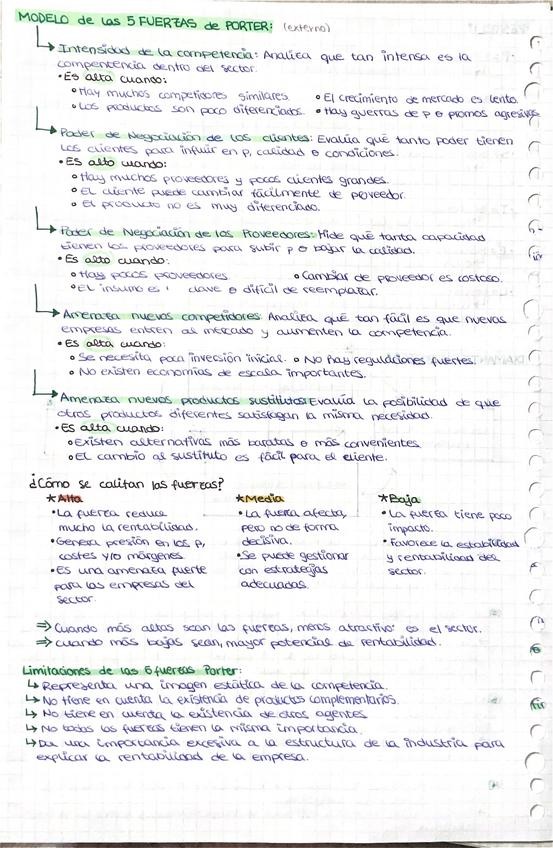 MODELO de las 5 FUERZAS de PORTER: (externo)
Intensidad de la competencia: Analiza que tan intensa es la
competencia dentro del sector.
• Es alta cuando:
• Hay muchos competidores similares. • El crecimiento de mercado es lento.
• Los productos son poco diferenciados. • Hay guerras de p o promos agresivas
Poder de Negociación de los clientes: Evalúa qué tanto poder tienen
los clientes para influir en p, calidad o condiciones.
• Es alto cuando:
• Hay muchos proveedores y pocos clientes grandes.
• El cliente puede cambiar fácilmente de proveedor.
• El producto no es muy diferenciado.
Poder de Negociación de los Proveedores: Mide qué tanta capacidad
tienen los proveedores para subir p o bajar la calidad.
• Es alto cuando:
• Hay pocos proveedores. • Cambiar de proveedor es costoso.
• El insumo es clave o difícil de reemplazar.
Amenaza nuevos competidores: Analiza qué tan fácil es que nuevas
empresas entren al mercado y aumenten la competencia.
• Es alta cuando:
• Se necesita poca inversión inicial. • No hay regulaciones fuertes.
• No existen economías de escala importantes.
Amenaza nuevos productos sustitutos: Evalúa la posibilidad de que
otros productos diferentes satisfagan la misma necesidad.
• Es alta cuando:
• Existen alternativas más baratas o más convenientes
• El cambio al sustituto es fácil para el cliente.
¿Cómo se califan las fuerzas?
* Alta
• La fuerza reduce
mucho la rentabilidad.
• Genera presión en los p,
costes y/o márgenes.
• Es una amenaza fuerte
para las empresas del
sector.
* Media
• La fuerza afecta,
pero no de forma
decisiva.
• Se puede gestionar
con estrategias
adecuadas.
* Baja
• La fuerza tiene poco
impacto.
• Favorece la estabilidad
y rentabilidad del
sector.
⇒ Cuando más altas sean las fuerzas, menos atractivo es el sector.
⇒ Cuando más bajas sean, mayor potencial de rentabilidad.
Limitaciones de las 5 fuerzas Porter:
↳ Representa una imagen estática de la competencia.
↳ No tiene en cuenta la existencia de productos complementarios.
↳ No tiene en cuenta la existencia de otros agentes
↳ No todas las fuerzas tienen la misma importancia.
↳ Da una importancia excesiva a la estructura de la industria para
explicar la rentabilidad de la empresa.